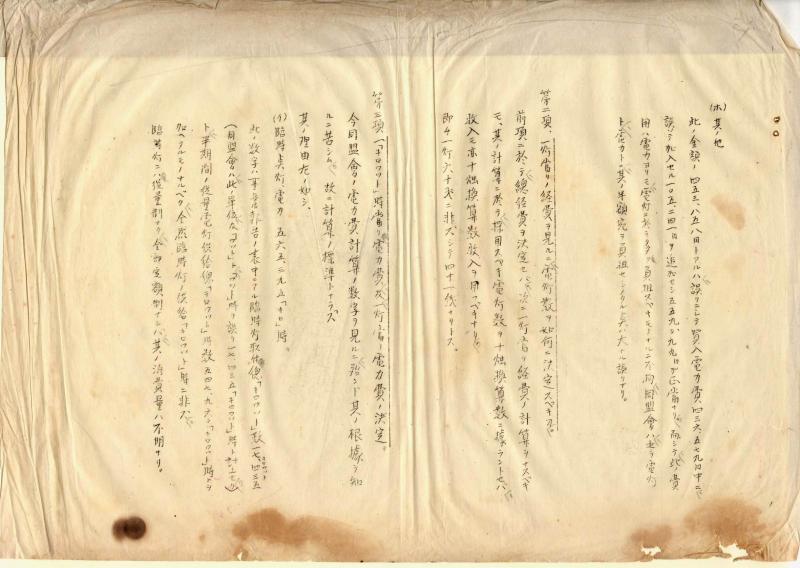 (ホ) 其ノ他
此ノ金額ノ四五三、八五八円トアルハ誤リニシテ買入電力費四三六、五七九円中ニ
誤リ記入セル一〇五、二四一円ヲ追加セシ五五九、〇九九円ガ正当ナリ。而シテ此ノ費
用ハ電力ヨリモ電灯ニ於テ多ク負担スベキモノナルニ不拘同盟会ハ之ヲ電灯
ト電力トニ其ノ半額宛ヲ負担セシメタルハ大ナル誤リナリ。
第二項、一灯当リノ経費ヲ見ルニ電灯数ヲ如何ニ決定スベキカ。
前項ニ於テ總経費ヲ決定セバ次ニ一灯当リ経費ノ計算ヲナスベキ
モ、其ノ計算ニ於テ採用スベキ電灯数ヲ十燭換算数ニ據ラントセバ
収入モ亦十燭換算数収入ヲ用フベキナリ。
即チ一灯六十銭ニ非ズシテ四十一銭ナリトス。
第三項「キロワット」時当リ電力費及一灯当リ電力費ノ決定。
今同盟会ノ電力費計算ノ数字ヲ見ルニ殆ンド其ノ根據ヲ知
ルニ苦シム。故ニ計算ノ標準トナラズ
其ノ理由左ノ如シ、
(イ) 臨時点灯電力 五六五、二九五「キロ」時。
此ノ数字ハ事業報告ノ表中ニアル臨時灯取付總「キロワット」数一七、四三五
(同盟会ハ此ノ単位ヲ「ワット」時ト誤リ一七、四三五「キロワット」時ト計上セリ)
ト半期間ノ従量電灯供給總「キロワット」時数五四七、八六〇「キロワット」時トヲ
加ヘタルモノナルベク全然臨時灯ノ供給「キロワット」時ニ非ズ。
臨時灯ニハ従量制ナク全部定額制ナレバ其ノ消費量ハ不明ナリ。